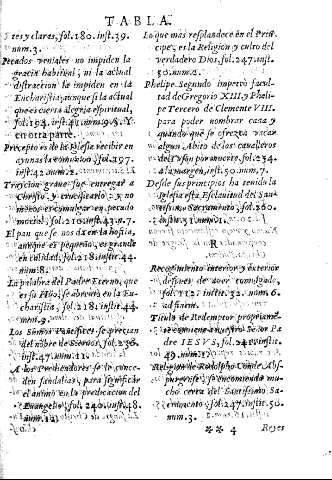 TABLA.
y claras, fol. 180. inst. 39.
num. 3.
Pecados veniales no impiden la
gracia habitual; ni la actual
distraction la impiden en la
Eucharistia, aunque si la actual
que es cierta alegria espiritual,
fol. 194. inst. 41. num. 9. 5. Y
en otra parte.
Precepto es de la Iglesia recebir en
ayunas la comunion, fol. 197.
inst. 42. num. 2.
Traycion grave fue entregar a
Christo, y no
menos es comulgar en pecado
mortal, fol. 210. inst. 43. n. 7.
El pan que se nos da en la hostia,
aunque es pequeño, es grande
en calidad, fol. 218. inst. 44.
num. 8.
La palabra del Padre Eterno, que
es su Hijo, se abrevió en la Eu-
charistia, fol. 218. inst. 44.
num. 9.
Los Sumos Pontifices se precian
del nõbre de Siervos, fol. 236.
inst. 47. num. 11.
A los Predicadores se les conce-
den sandalias, para significar
el animo en la predicacion del
Evangelio, fol. 240. inst. 48.
num. 12.
Lo que mas resplandece en el Prin-
cipe, es la Religion, y culto del
verdadero Dios, fol. 247. inst.
50. num. 2.
Phelipe Segundo impetró facul-
tad de Gregorio XIII. y Pheli-
pe Tercero de Clemente VIII.
para poder nombrar casa y
quando que se ofrezca vacar
algun Abito de los cavalleros
del Tuson por muerte, fol. 254.
a la margen, inst. 50. num. 7.
Desde sus principios ha tenido la
Iglesia esta Esclavitud del San-
tissimo Sacramento, fol. 260.
inst. 51. num. 1.
R
Recogimiento interior y exterior
despues de aver comulgado,
fol. 112. instit. 32. num. 6.
Titulo de Redemptor propriamẽ-
te comunica a nuestro Señor Pa
dre IESVS, fol. 241. instit.
49. num. 1.
Religion de Rodolpho Conde Abs-
purgense, se encomienda mu-
cho cerca del Santissimo Sa-
cramento, fol. 247. instit. 50.
num. 3.
** 4 Reyes